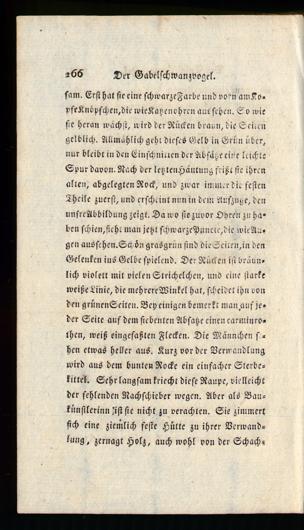 266 Der Gabelschwanzvogel.
sam. Erst hat sie eine schwarze Farbe und vorn am Ko-
pfe Knöpfchen, die wie Katzenohren aussehen. So wie
sie heran wächst, wird der Rücken braun, die Seiten
gelblich. Allmählich geht dieses Gelb in Grün über,
nur bleibt in den Einschnitten der Absätze eine leichte
Spur davon. Nach der letzten Häutung frißt sie ihren
alten, abgelegten Rock, und zwar immer die festen
Theile zuerst, und erscheint nun in dem Aufzuge, den
unsre Abbildung zeigt. Da wo sie zuvor Ohren zu ha-
ben schien, sieht man jetzt schwarze Puncte, die wie Au-
gen aussehen. Schön grasgrün sind die Seiten, in den
Gelenken ins Gelbe spielend. Der Rücken ist bräun-
lich violett mit vielen Strichelchen, und eine starke
weiße Linie, die mehrere Winkel hat, scheidet ihn von
den grünen Seiten. Bey einigen bemerkt man auf je-
der Seite auf dem siebenten Absatze einen carminro-
then, weiß eingefaßten Flecken. Die Männchen s-
hen etwas heller aus. Kurz vor der Verwandlung
wird aus dem bunten Rocke ein einfacher Sterbe-
kittel. Sehr langsam kriecht diese Raupe, vielleicht
der fehlenden Nachschieber wegen. Aber als Bau-
künstlerinn ist sie nicht zu verachten. Sie zimmert
sich eine ziemlich feste Hütte zu ihrer Verwand-
lung, zernagt Holz, auch wohl von der Schach-